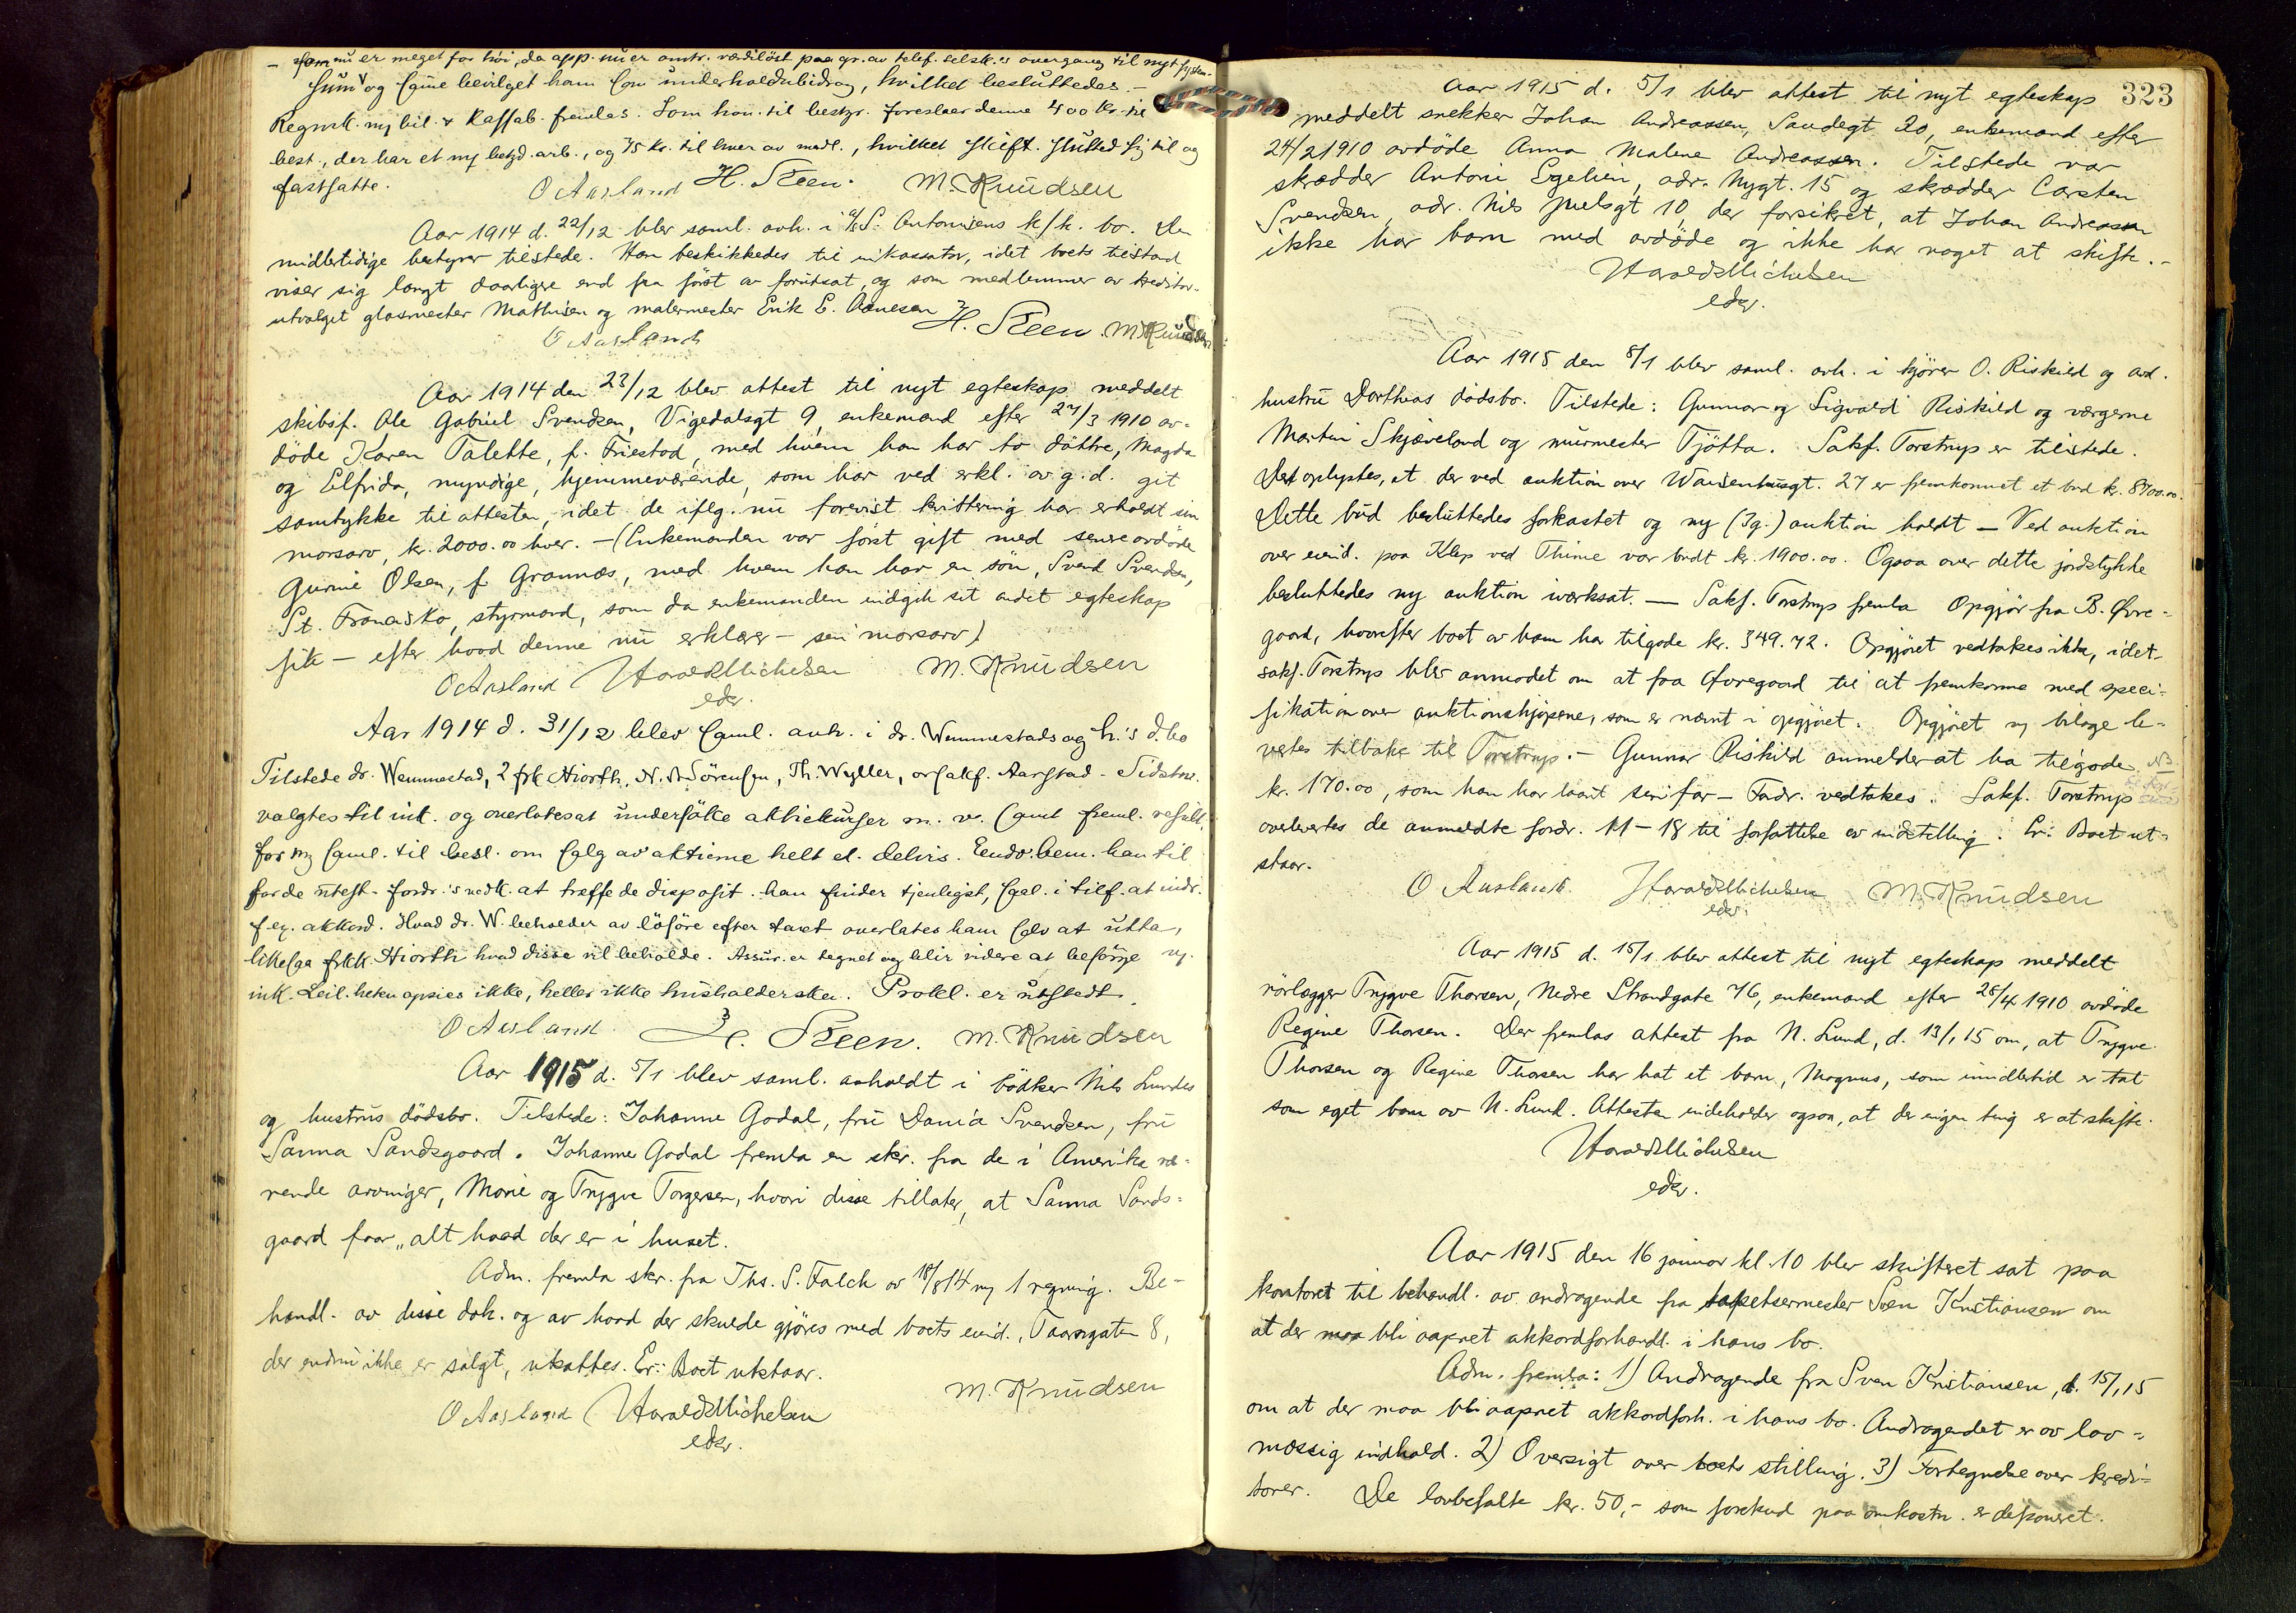 - som nu er meget for höi, da app. nu er omtr. værdilöst paa gr. av telef. selsk.s overgang til nyt system.
sum og samme bevilget ham som underholdsbidrag, hvilket besluttedes. -
Regnsk. m/ bil. & Kassab. fremlas. Som hon. til bestyr. foreslaar denne 400 Kr. til
best., der har et m/ betyd. arb., og 75 Kr. til hver av medl., hvilket skift. sluttet sig til og
fastsatte.
O Aasland H. Steen. M. Knudsen
Aar 1914 d. 22/12 blev saml. avh. i S. Antonisens k/k. bo. Den
midlertidige bestyrer tilstede. Han beskikkedes til inkassator, idet boets tilstand
viser sig langt daarligere end fra först av forutsat, og som medlemmer av kreditor-
utvalget glasmester Mathisen og malermester Erik E. Aanesen
O Aasland H. Steen. M. Knudsen
Aar 1914 den 23/12 blev attest til nyt egteskap meddelt
skibsf. Ole Gabriel Svendsen, Vigedalsgt 9, enkemand efter 27/3 1910 av-
döde Karen Talette, f. Friestad, med hvem han har to döttre, Magda
og Elfrida, myndige, hjemmeværende, som har ved erkl. av g. d. git
samtykke til attesten, idet de iflg. nu forevist kvittering har erholdt sin
morsarv, kr. 2000.00 hver. - (Enkemanden var först gift med senere avdöde
Gurine Olsen, f. Grannæs, med hvem han har en sön, Svend Svendsen,
St. Francisko, styrmand, som da enkemanden indgik sit andet egteskap
fik - efter hvad denne nu erklærer - sin morsarv)
O Aasland Harald Michelsen M. Knudsen
edsv.
Aar 1914 d. 31/12 blev saml. avh. i dr. Wennestads og h.'s d.bo
Tilstede dr. Wennestad, 2 frk Hiorth, N. Sörensen, Th. Wyller, orsakf. Aarstad - Sidstn.
valgtes til ink. og overlates at undersöke aktiekurser m. v. samt freml. result.
for ny saml. til besl. om salg av aktierne helt el. delvis.
forde utest. fordr.'s vedk. at treffe de disposit. han finder tjenligst, spec. i tilf. at indr.
f. ex. akkord. Hvad dr. W. beholder av lösöre efter taxt overlates ham selv at utta,
likesaa frkk. Hiorth hvad disse vil beholde. Assur. er tegnet og blir videre at besörge
ink. Leil. heku opsies ikke, heller ikke husholdersken. Prokl. er utstedt.
O Aasland H. Steen. M. Knudsen
Aar 1915 d. 5/1 blev saml. avholdt i bödker Nils Lundes
og hustrus dödsbo. Tilstede: Johanne Godal, fru Dania Svendsen, fru
Sanna Sandsgaard. Johanne Godal fremla en skr. fra de i Amerika væ-
rende arvinger, Marie og Trygve Torgersen, hvori disse tillater, at Sanna Sands-
gaard faar „alt hvad der er i huset.
Adm. fremla skr. fra Ths. S. Falck av 18/8 14 m/ 1 regning. Be-
handl. av disse dok. og av hvad der skulde gjöres med boets eiend., Taarngaten 8,
der endnu ikke er solgt, utsattes. Er: Boet utstaar.
O Aasland Harald Michelsen M. Knudsen
edsv.
323
Aar 1915 d. 5/1 blev attest til nyt egteskap
meddelt snekker Johan Andreassen, Sandegt 20, enkemand efter
24/2 1910 avdöde Anna Malene Andreassen. Tilstede var
skrædder Antoni Egelien, adr. Nygt. 15 og skrædder Carsten
Svendsen, adr. Nils Juelsgt 10, der forsikret, at Johan Andreassen
ikke har barn med avdöde og ikke har noget at skifte. -
Harald Michelsen
edsv.
Aar 1915 den 8/1 blev saml. avh. i kjörer O. Riskild og avd.
hustru Dortheas dödsbo. Tilstede: Gunnar og Sigvald Riskild og værgerne
Martin Skjæveland og murmester Tjötta. Sakf. Torstrup er tilstede.
Det oplystes, at der ved auktion over Waisenhusgt. 27 er fremkommet et bud kr. 8700.00.
Dette bud besluttedes forkastet og ny (3g.) auktion holdt - Ved auktion
over eiend. paa Klep ved Thime var budt kr. 1900.00. Ogsaa over dette jordstykke
besluttedes ny auktion iverksat. - Sakf. Torstrup fremla Opgjör fra B. Övre-
gaard, hvorefter boet av ham har tilgode kr. 349.72. Opgjöret vedtakes ikke, idet
sakf. Torstrup blev anmodet om at faa Övregaard til at fremkomme med speci-
fikation over auktionskjöpene, som er nævnt i opgjöret. Opgjöret m/ bilage le-
vertes tilbake til Torstrup. - Gunnar Riskild anmelder at ha tilgode
kr. 170.00, som han har laant sin far - Fodr. vedtakes. Sakf. Torstrup
overlevertes de anmeldte fordr. 11 - 18 til forfattelse av indstilling. Er: Boet ut-
staar.
O Aasland. Harald Michelsen M. Knudsen
edsv.
Aar 1915 d. 15/1 blev attest til nyt egteskap meddelt
rörlægger Trygve Thorsen, Nedre Strandgate 76, enkemand efter 28/4 1910 avdöde
Regine Thorsen. Der fremlas attest fra N. Lund, d. 13/1 15 om, at Trygve
Thorsen og Regine Thorsen har hat et barn, Magnus, som imidlertid er tat
som eget barn av N. Lund. Attesten indeholder ogsaa, at der ingen ting er at skifte.
Harald Michelsen
edsv.
Aar 1915 den 16 januar kl. 10 blev skifteret sat paa
kontoret til behandl. av andragende fra tapetsermester Sven Kristiansen om
at der maa bli aapnet akkordforhandl. i hans bo.
Adm. fremla: 1) Andragende fra Sven Kristiansen, d. 15/1 15
om at der maa bli aapnet akkordforh. i hans bo. Andragendet er av lov-
mæssig indhold. 2) Oversigt over boets stilling. 3) Fortegnelse over kredi-
torer. De lovbefalte kr. 50,- som forskud paa omkostn. er deponeret.